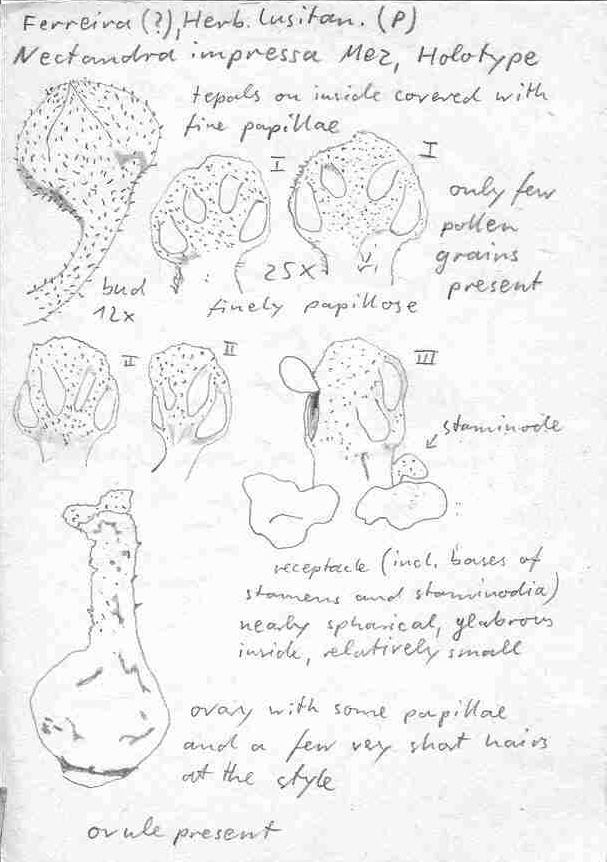 Ferreira (?), Herb. Lusitan. (P)
Nectandra impressa Mez, Holotype
tepals on inside covered with
fine papillae
I
I
only few
pollen
grains
present
25x
bud
12x
finely papillose
II
II
III
staminode
receptacle (incl. bases of
stamens and staminodia)
nearly spherical, glabrous
inside, relatively small
ovary with some papillae
and a few very short hairs
at the style
ovule present